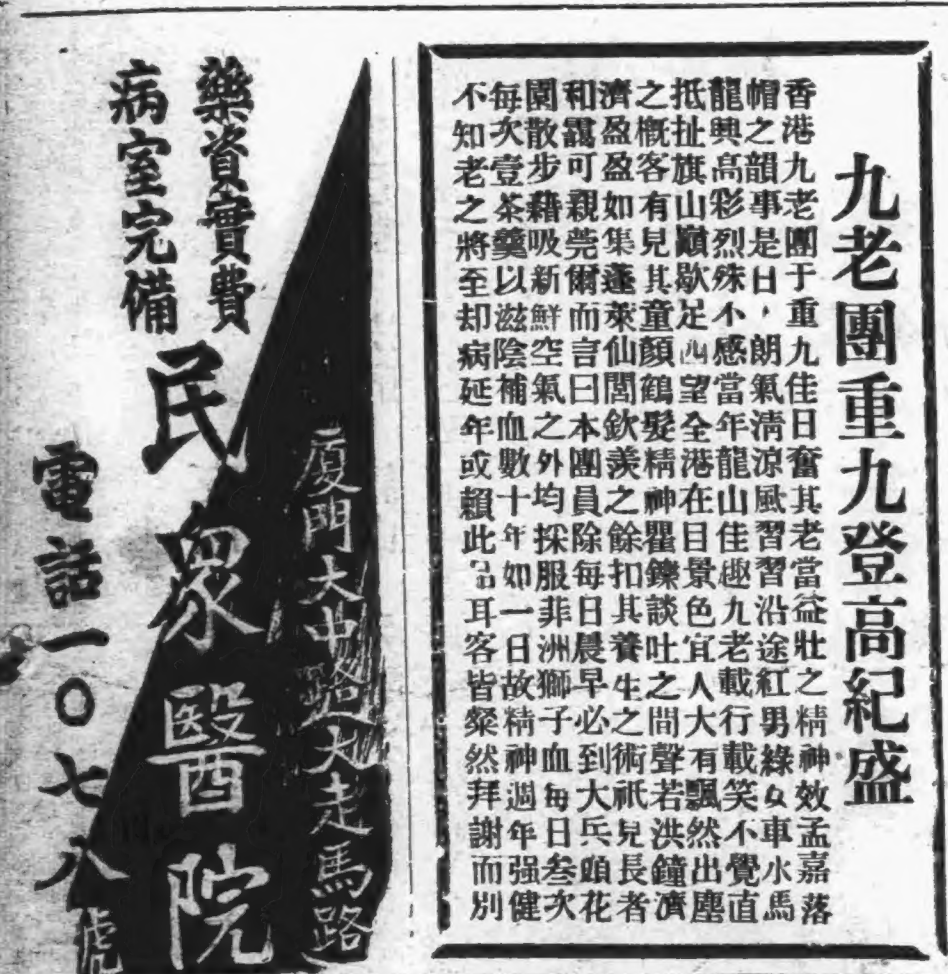 九老團重九登高紀盛
香港九老團于重九佳日奮其老當益壯之精神效孟嘉落
帽之韻事是日,朗氣淸涼風習習沿途紅男綠女車水馬
龍興高彩烈殊小感當年龍山佳趣九老載行載笑不覺直
抵扯旗山巓歇足四望全港在目景色宜人大有飄然出塵
之概客有見其童顏鶴髮精神矍鑠談吐之間聲若洪鐘濟
濟盈盈如集蓬萊仙閣欽羨之餘扣其養生之術祇見長者
和靄可親莞爾而言曰本團員除每日晨早必到大兵頭花
園散步藉吸新鮮空氣之外均採服非洲獅子血每日叁次
每次壹茶羹以滋陰補血數十年如一日故精神週年强健
不知老之將至却病延年或賴此耳客皆粲然拜謝而別
厦門大中路過大走馬路
藥資實費
病室完備
民眾醫院
電話一〇七八號